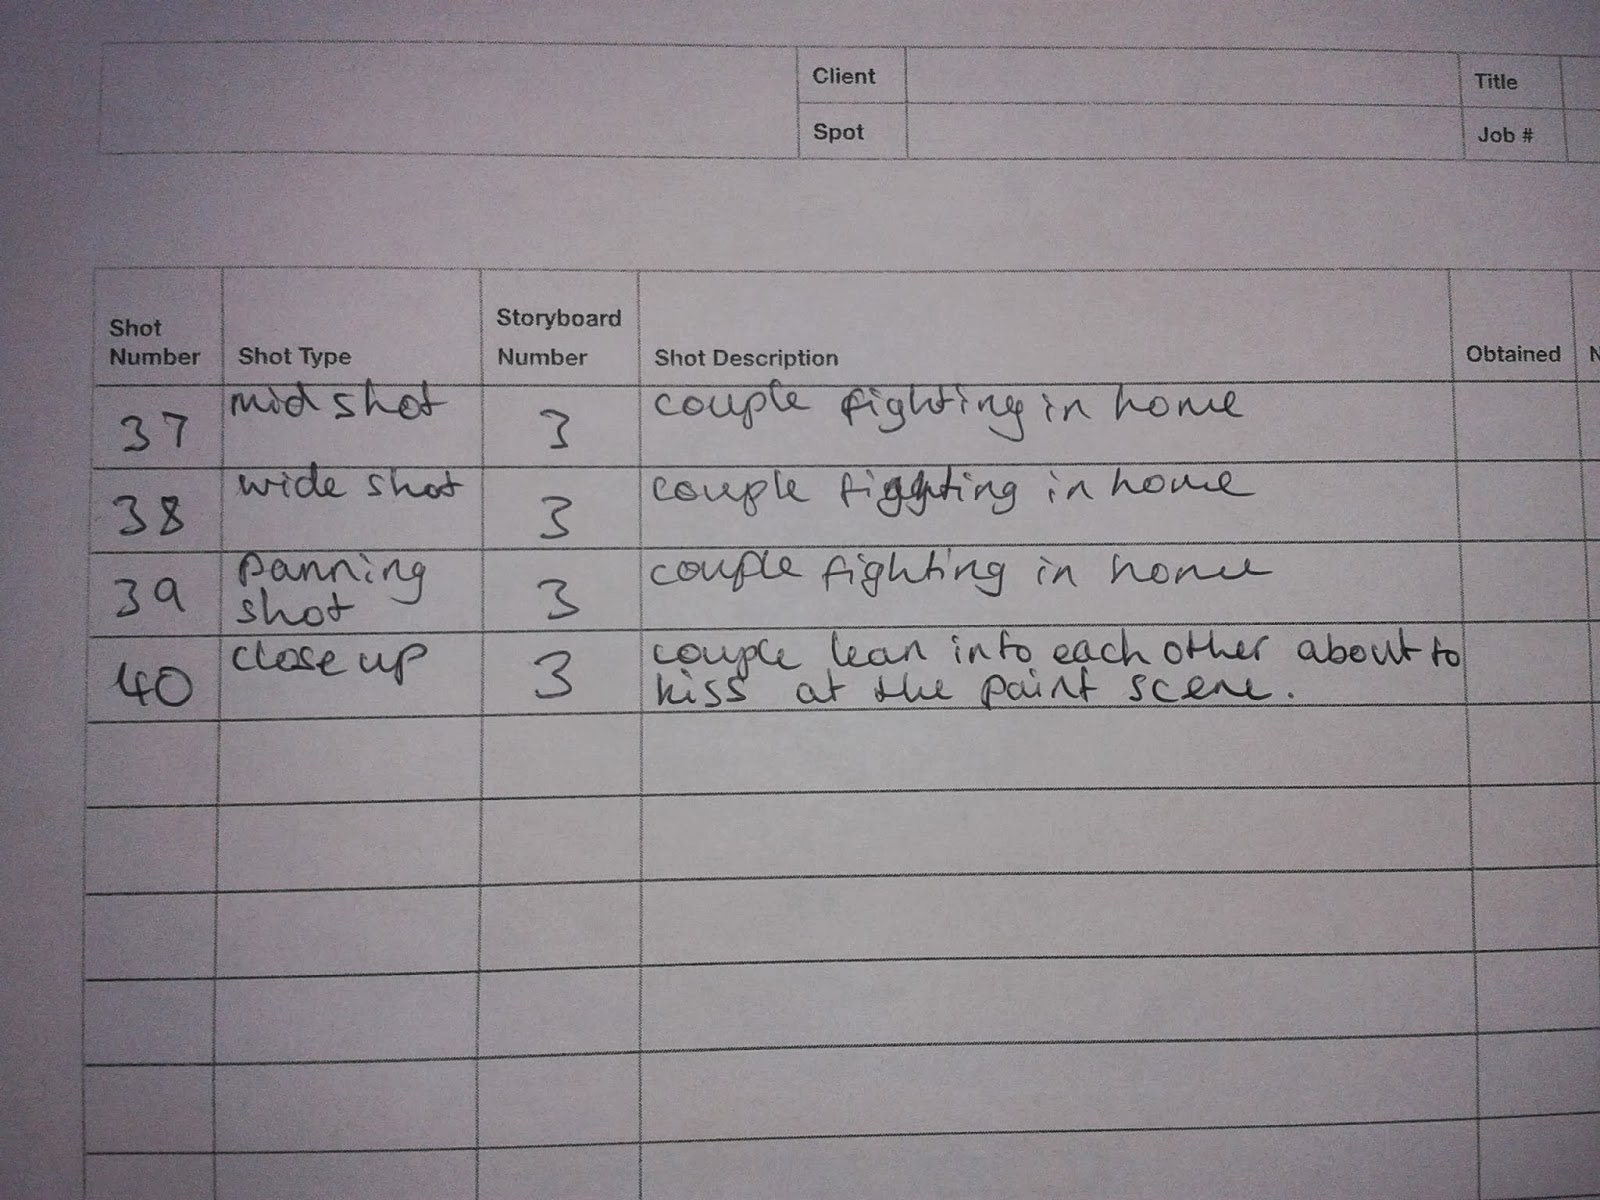 Client
Title
Spot
Job #
Shot
Number
Shot Type
Storyboard
Number
Shot Description
Obtained
N
37 mid shot 3 couple fighting in home
38 wide shot 3 couple fighting in home
39 panning
shot 3 couple fighting in home
40 close up 3 couple lean into each other about to
kiss at the paint scene.